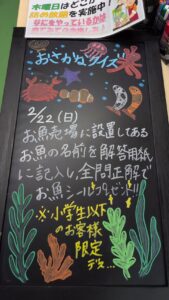 木曜日はどこか
詰め放題を実施中！
おさかなクイズ
2/22(日)
お魚売場に設置してある
お魚の名前を解答用紙
に記入し、全問正解で
お魚シールプレゼント!!
※小学生以下
のお客様
限定
デス...